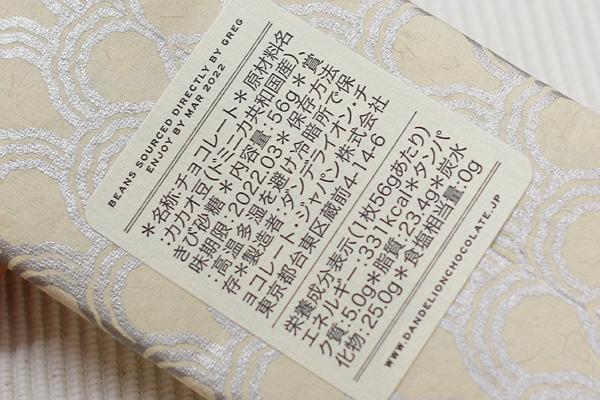 BEANS SOURCED DIRECTLY BY GREG
ENJOY BY MAR 2022
*名称:チョコレート*原材料名
:カカオ豆(ドミニカ共和国産)、
きび砂糖*内容量:56g*賞
味期限:2022.03*保存方法
:高温多湿を避け冷暗所で保
存*製造者:ダンデライオン・チ
ョコレート・ジャパン株式会社
東京都台東区蔵前4-14-6
栄養成分表示(1枚56gあたり)
エネルギー:331kcal*タンパ
ク質:5.0g*脂質:23.4g*炭水
化物:25.0g*食塩相当量:0g
WWW.DANDELIONCHOCOLATE.JP